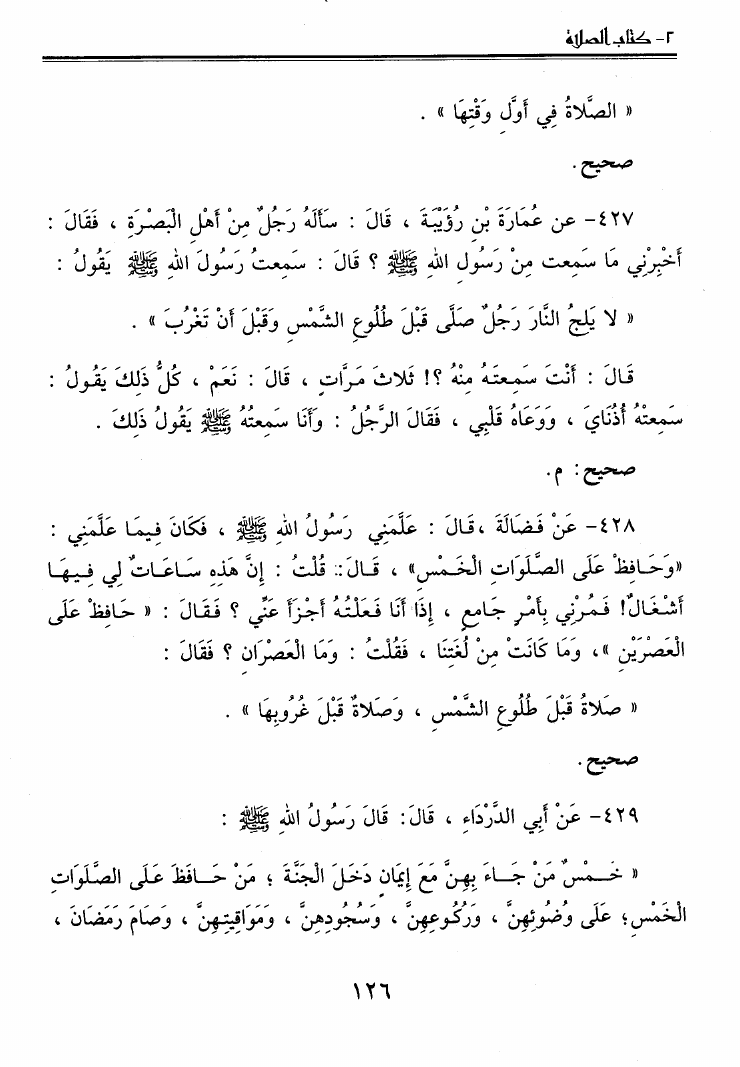 ٢- كتاب الصلاة
« الصَّلاةُ فِي أَوَّلِ وَقْتِهَا » .
صحيح .
٤٢٧- عن عُمَارَةَ بْنِ رُؤَيْبَةَ ، قَالَ : سَأَلَهُ رَجُلٌ مِنْ أَهْلِ الْبَصْرَةِ ، فَقَالَ :
أَخْبِرْنِي مَا سَمِعت مِنْ رَسُولِ اللهِ ﷺ ؟ قَالَ : سَمِعتُ رَسُولَ اللهِ ﷺ يَقُولُ :
« لا يَلِجُ النَّارَ رَجُلٌ صَلَّى قَبْلَ طُلُوعِ الشَّمْسِ وَقَبْلَ أَنْ تَغْرُبَ » .
قَالَ : أَنْتَ سَمِعتَهُ مِنْهُ ؟! ثَلاثَ مَرَّاتٍ ، قَالَ : نَعَمْ ، كُلُّ ذَلِكَ يَقُولُ :
سَمِعتْهُ أُذُنَايَ ، وَوَعَاهُ قَلْبِي ، فَقَالَ الرَّجُلُ : وَأَنَا سَمِعتُهُ ﷺ يَقُولُ ذَلِكَ .
صحيح : م.
٤٢٨- عَنْ فَضَالَةَ ،قَالَ : عَلَّمَنِي رَسُولُ اللهِ ﷺ ، فَكَانَ فِيمَا عَلَّمَنِي :
«وَحَافِظْ عَلَى الصَّلَوَاتِ الْخَمْسِ» ، قَالَ:: قُلْتُ : إِنَّ هَذِهِ سَاعَاتٌ لِي فِيهَا
أَشْغَالٌ! فَمُرْنِي بِأَمْرٍ جَامِعٍ ، إِذَا أَنَا فَعَلْتُهُ أَجْزَأَ عَنِّي ؟ فَقَالَ : « حَافِظْ عَلَى
الْعَصْرَيْنِ »، وَمَا كَانَتْ مِنْ لُغَتِنَا ، فَقُلْتُ : وَمَا الْعَصْرَانِ ؟ فَقَالَ :
« صَلاةُ قَبْلَ طُلُوعِ الشَّمْسِ ، وَصَلاةٌ قَبْلَ غُرُوبِهَا » .
صحيح .
٤٢٩- عَنْ أَبِي الدَّرْدَاءِ ، قَالَ: قَالَ رَسُولُ اللهِ ﷺ :
« خَمْسٌ مَنْ جَاءَ بِهِنَّ مَعَ إِيمَانٍ دَخَلَ الْجَنَّةَ ؛ مَنْ حَافَظَ عَلَى الصَّلَوَاتِ
الْخَمْسِ؛ عَلَى وُضُوئِهِنَّ ، وَرُكُوعِهِنَّ ، وَسُجُودِهِنَّ ، وَمَوَاقِيتِهِنَّ ، وَصَامَ رَمَضَانَ ،
١٢٦